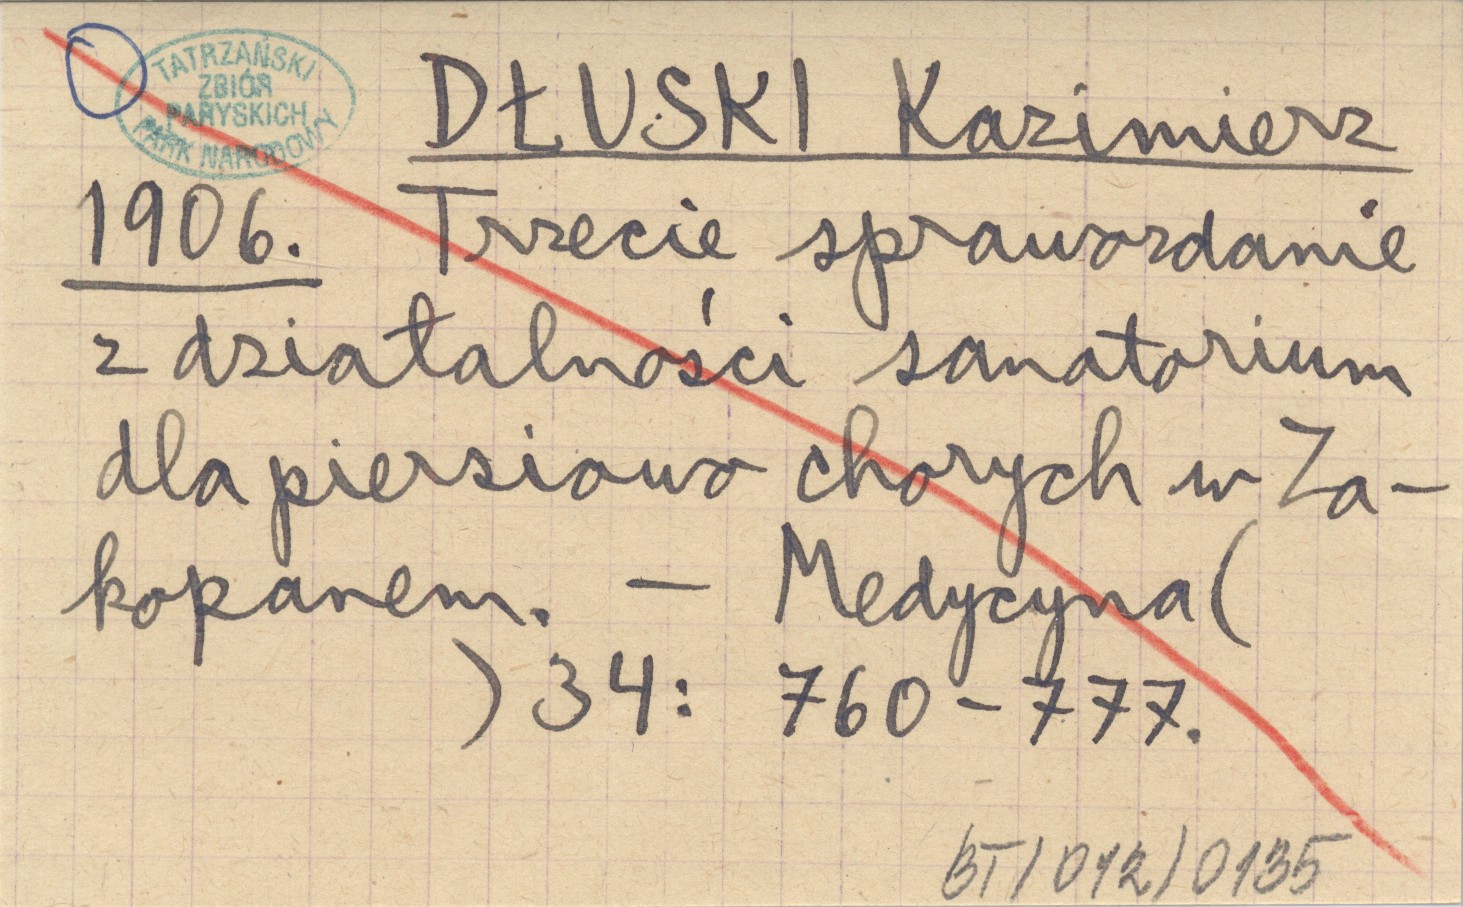 TATRZAŃSKI
ZBIÓR
PARYSKICH
PARK NARODOWY
DŁUSKI Kazimierz
1906. Trzecie sprawozdanie
z działalności sanatorium
dla piersiowo chorych w Za-
kopanem. — Medycyna (
) 34: 760-777.
BT/012/0135